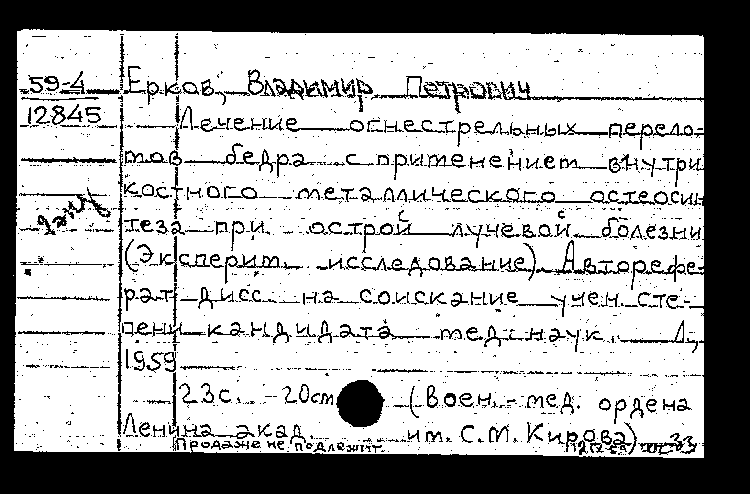 59-4
12845
Ерков, Владимир Петрович
Лечение огнестрельных перело-
мов бедра с применением внутри
костного металлического остеосин
теза при острой лучевой болезни
(Эксперим. исследование). Авторефе-
рат дисс. на соискание учен. сте-
пени кандидата мед. наук. Л.,
1959
23с. 20см (Воен.-мед. ордена
Ленина акад. им. С.М. Кирова)
Продаже не подлежит.